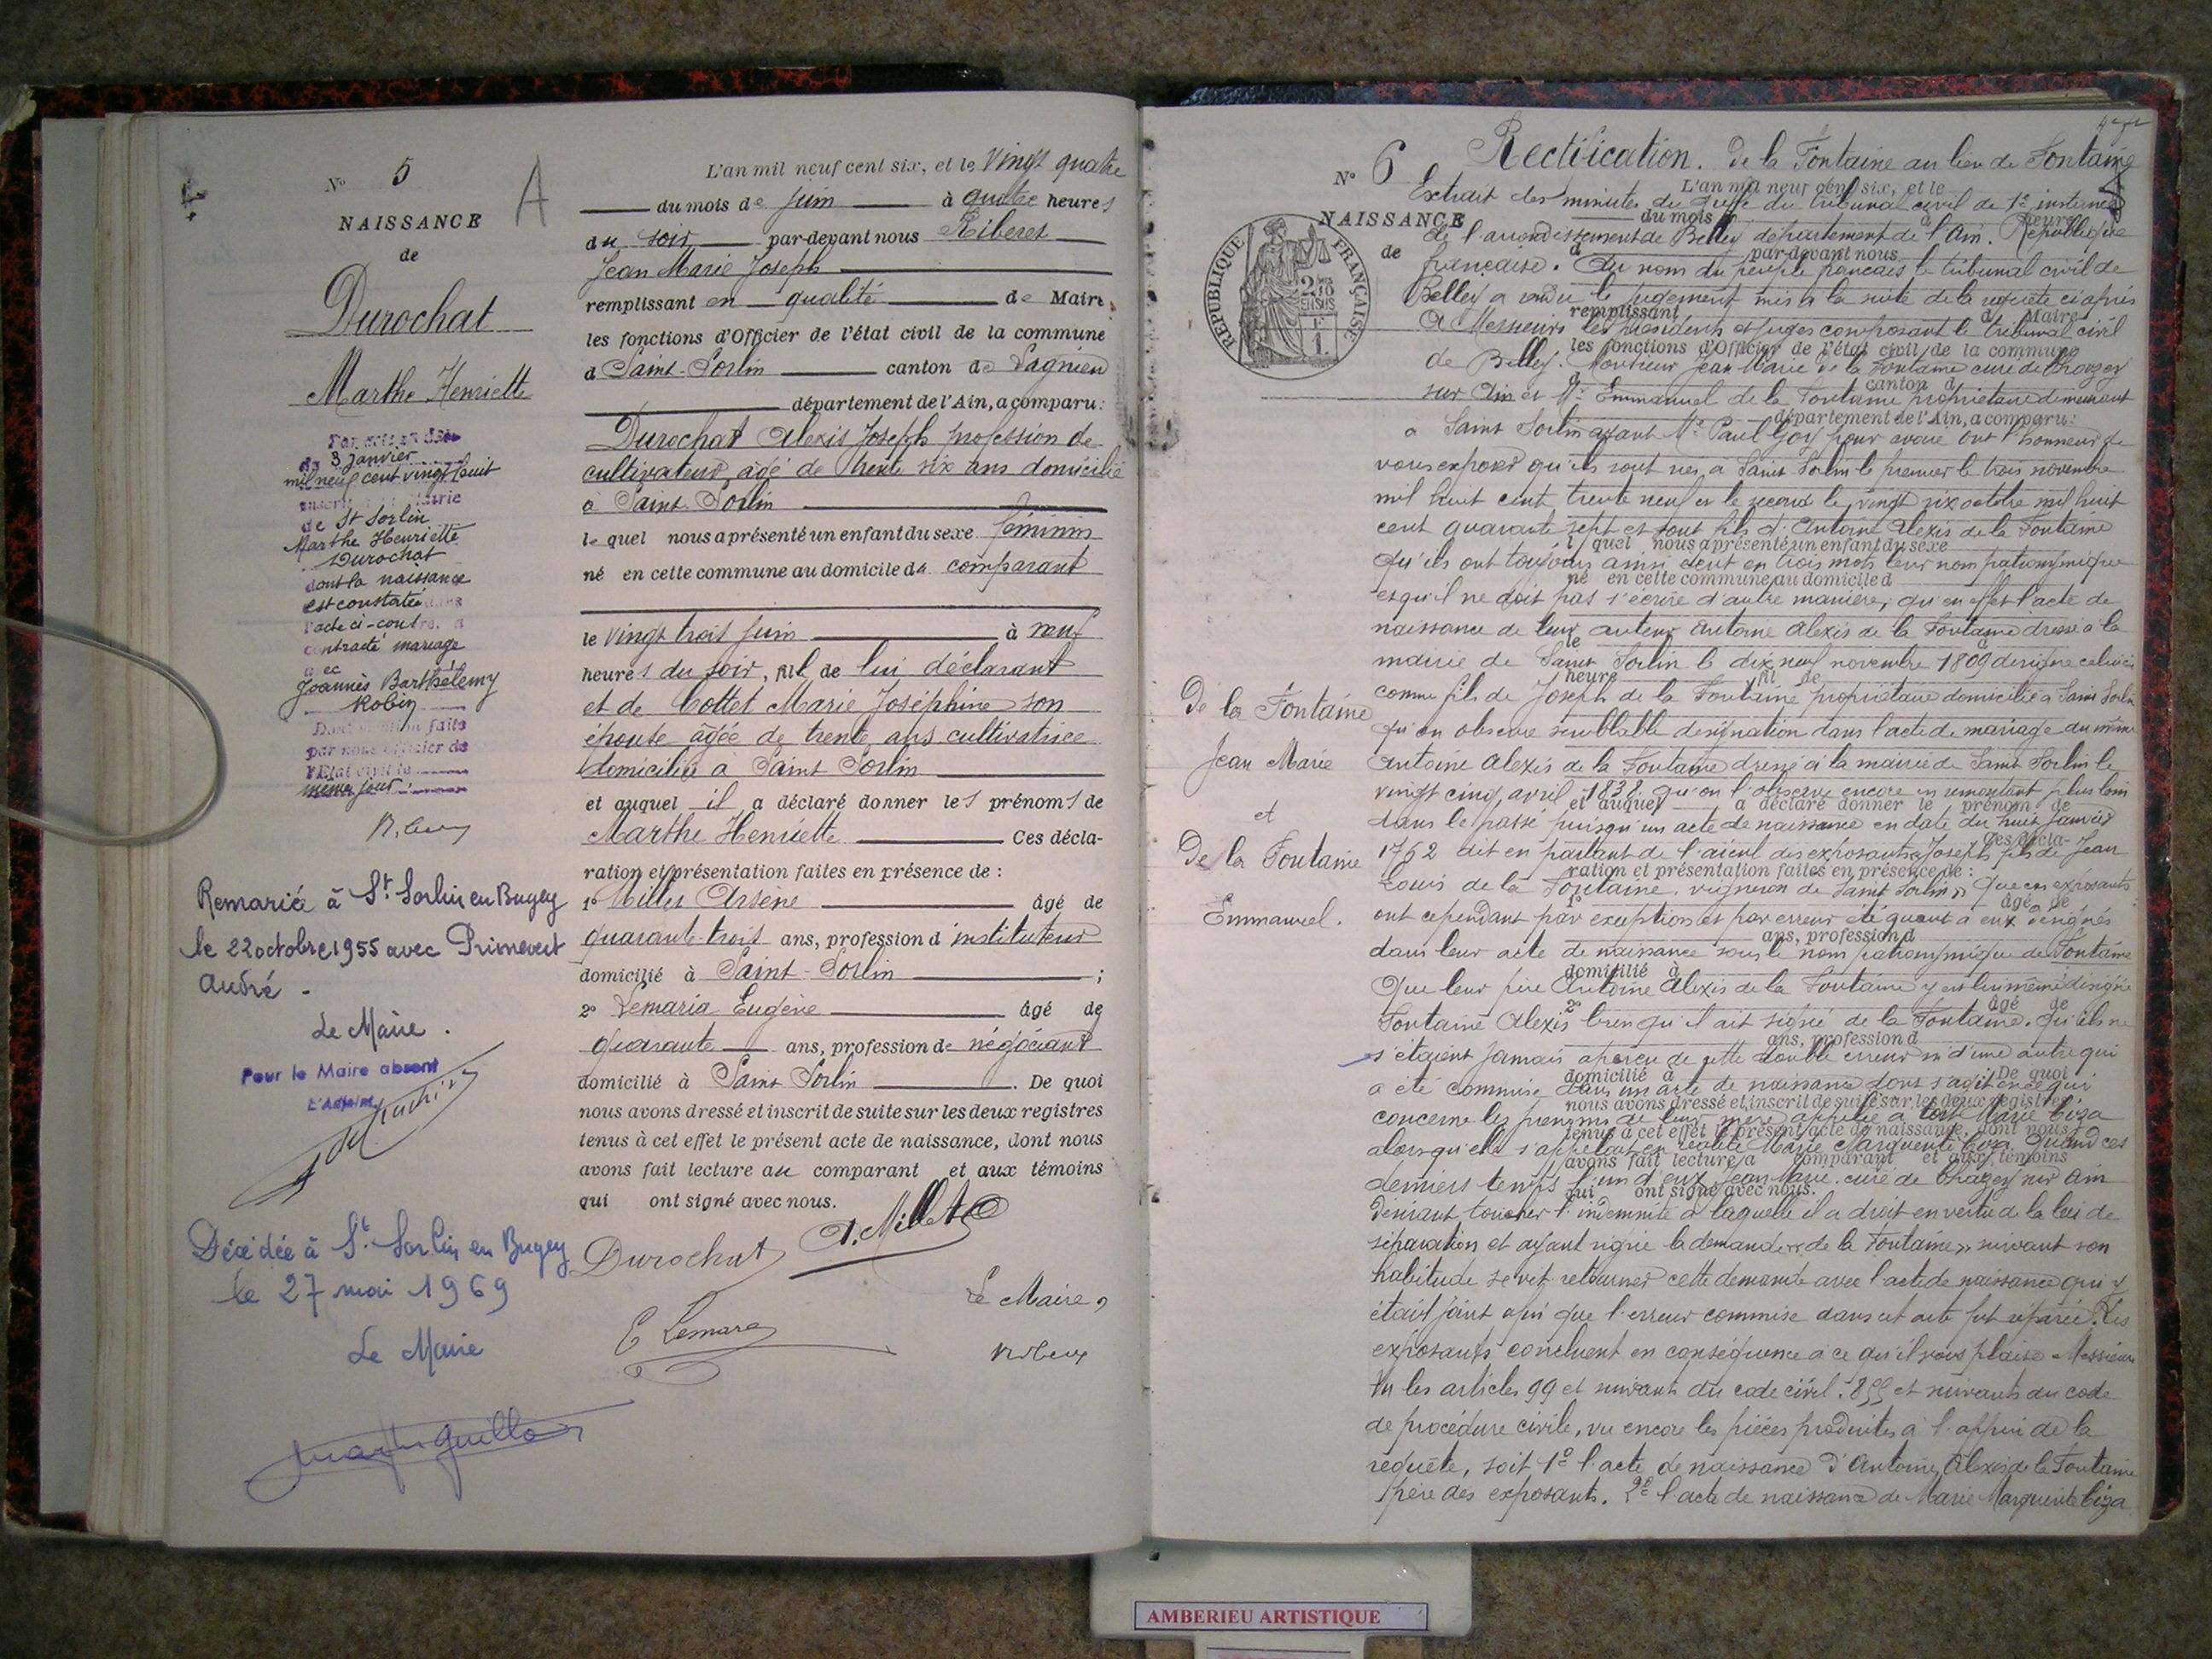 N° 5
NAISSANCE
de
Durochat
Marthe Henriette
du 3 Janvier
mil neuf cent vingt huit
de St Sorlin
Marthe Henriette
Durochat
dont la naissance
est constatée dans
l'acte ci-contre, a
contracté mariage
avec
Joannès Barthélemy
Robin
par nous officier de
l'Etat civil le
même jour.
Remariée à St Sorlin en Bugey
le 22 octobre 1955 avec Primevert
André -
Le Maire.
Pour le Maire absent
L'Adjoint
Décédée à St Sorlin en Bugey
le 27 mai 1969
Le Maire
A
L'an mil neuf cent six, et le Vingt quatre
du mois de juin à quatre heures
du soir par-devant nous Riberet
Jean Marie Joseph
remplissant en qualité de Maire
les fonctions d'Officier de l'état civil de la commune
d Saint-Sorlin canton de Lagnieu
département de l'Ain, a comparu:
Durochat Alexis Joseph profession de
cultivateur âgé de trente six ans domicilié
à Saint Sorlin
lequel nous a présenté un enfant du sexe féminin
né en cette commune au domicile du comparant
le vingt trois juin à neuf
heures du soir, fil de lui déclarant
et de Cottet Marie Joséphine son
épouse âgée de trente ans cultivatrice
domiciliée à Saint Sorlin
et auquel il a déclaré donner les prénoms de
Marthe Henriette Ces décla-
ration et présentation faites en présence de :
1° Millet Arsène âgé de
quarante-trois ans, profession d'instituteur
domicilié à Saint-Sorlin ;
2° Lemaria Eugène âgé de
quarante ans, profession de négociant
domicilié à Saint Sorlin . De quoi
nous avons dressé et inscrit de suite sur les deux registres
tenus à cet effet le présent acte de naissance, dont nous
avons fait lecture au comparant et aux témoins
qui ont signé avec nous.
Durochat A. Millet
Le Maire,
E Lemaria
Rectification. De la Fontaine au lieu de Fontaine
N° 6
NAISSANCE
de
REPUBLIQUE FRANÇAISE
L'an mil neuf cent six, et le
Extrait des minutes du greffe du tribunal civil de 1re instance
du mois d à heure
de l'arrondissement de Belley département de l'Ain. République
d par-devant nous
française. Au nom du peuple français le tribunal civil de
Belley a rendu le jugement mis à la suite de la requête ci après
remplissant d Maire
A Messieurs les présidents et juges composant le tribunal civil
les fonctions d'Officier de l'état civil de la commune
de Belley. Monsieur Jean Marie de la Fontaine curé de Chazey
canton d
sur Ain et Mr Emmanuel de la Fontaine propriétaire demeurant
département de l'Ain, a comparu:
à Saint Sorlin ayant Me Paul Goy pour avoué ont l'honneur de
vous exposer qu'ils sont nés, à Saint Sorlin le premier le trois novembre
mil huit cent trente neuf et le second le vingt six octobre mil huit
cent quarante sept et sont fils d'Antoine Alexis de la Fontaine
l quel nous a présenté un enfant du sexe
qu'ils ont toujours ainsi écrit en trois mots leur nom patronymique
né en cette commune au domicile d
et qu'il ne doit pas s'écrire d'autre manière; qu'en effet l'acte de
naissance de leur auteur Antoine Alexis de la Fontaine dressé à la
le à
mairie de Saint Sorlin le dix neuf novembre 1809 désigne celui ci
heure fil de
comme fils de Joseph de la Fontaine propriétaire domicilié à Saint Sorlin
qu'on observe semblable désignation dans l'acte de mariage du même
Antoine Alexis de la Fontaine dressé à la mairie de Saint Sorlin le
vingt cinq avril 1838. qu'on l'observe encore en remontant plus loin
et auquel a déclaré donner le prénom de
dans le passé puisqu'un acte de naissance en date du huit Janvier
Ces décla-
1762 dit en parlant de l'aïeul des exposants « Joseph fils de Jean
ration et présentation faites en présence de :
Louis de la Fontaine. vigneron de Saint Sorlin » que ces exposants
1° âgé de
ont cependant par exception et par erreur été quant à eux désignés
ans, profession d
dans leur acte de naissance sous le nom patronymique de Fontaine
domicilié à
Que leur père Antoine Alexis de la Fontaine y est lui même désigné
2° âgé de
Fontaine Alexis bien qu'il ait signé de la Fontaine. qu'ils ne
ans, profession d
s'étaient jamais aperçu de cette double erreur ni d'une autre qui
domicilié à De quoi
a été commise dans un acte de naissance dont s'agit en ce qui
nous avons dressé et inscrit de suite sur les deux registres
concerne les prénoms de leur mère appelée à tort Marie Ciza
tenus à cet effet le présent acte de naissance, dont nous
alors qu'elle s'appelait en réalité Marie Marguerite Ciza Quand ces
avons fait lecture a comparant et aux témoins
derniers temps l'un d'eux Jean Marie. curé de Chazey sur Ain
qui ont signé avec nous.
désirant toucher l'indemnité à laquelle il a droit en vertu de la loi de
séparation et ayant signé la demande « de la Fontaine » suivant son
habitude se vit retourner cette demande avec l'acte de naissance qui y
était joint afin que l'erreur commise dans cet acte fut réparée. Les
exposants concluent en conséquence à ce qu'il vous plaise Messieurs
Vu les articles 99 et suivants du code civil. 855 et suivants du code
de procédure civile, vu encore les pièces produites à l'appui de la
requête, soit 1° l'acte de naissance d'Antoine Alexis de la Fontaine
père des exposants. 2° l'acte de naissance de Marie Marguerite Ciza
De la Fontaine
Jean Marie
et
De la Fontaine
Emmanuel.
AMBERIEU ARTISTIQUE